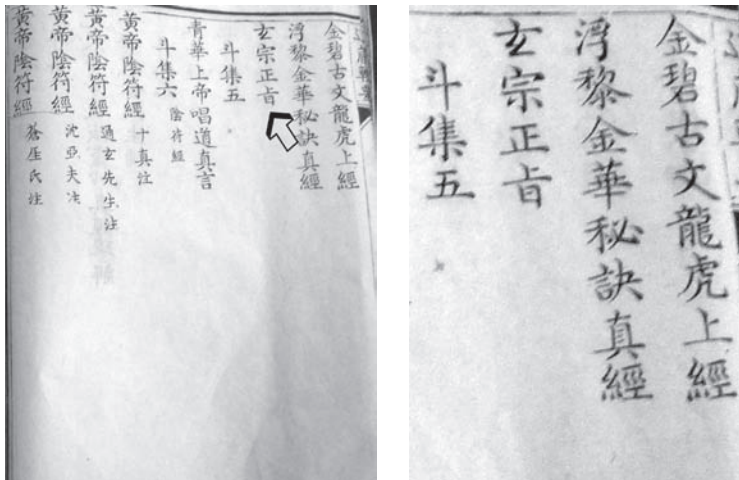 金碧古文龍虎上經
浮黎金華秘訣真經
玄宗正旨
斗集五
青華上帝唱道真言
斗集六 陰符經
黃帝陰符經 十真注
黃帝陰符經 通玄先生注
黃帝陰符經 沈亞夫注
黃帝陰符經 蒼厓氏註
金碧古文龍虎上經
浮黎金華秘訣真經
玄宗正旨
斗集五